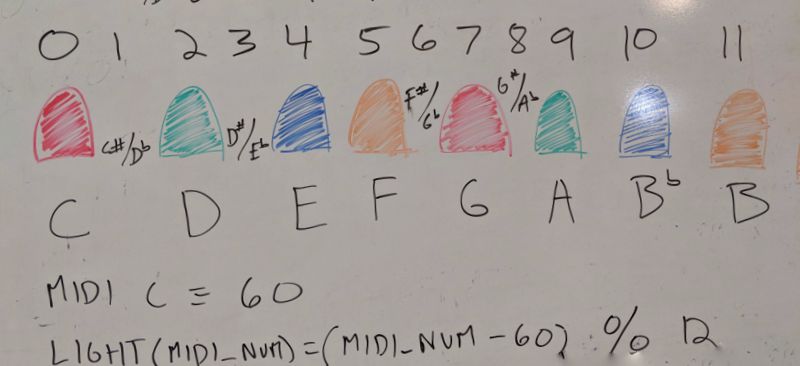 0 1 2 3 4 5 6 7 8 9 10 11
C#/Db D#/Eb F#/Gb G#/Ab
C D E F G A Bb B
MIDI C = 60
LIGHT(MIDI_NUM)=(MIDI_NUM-60) % 12